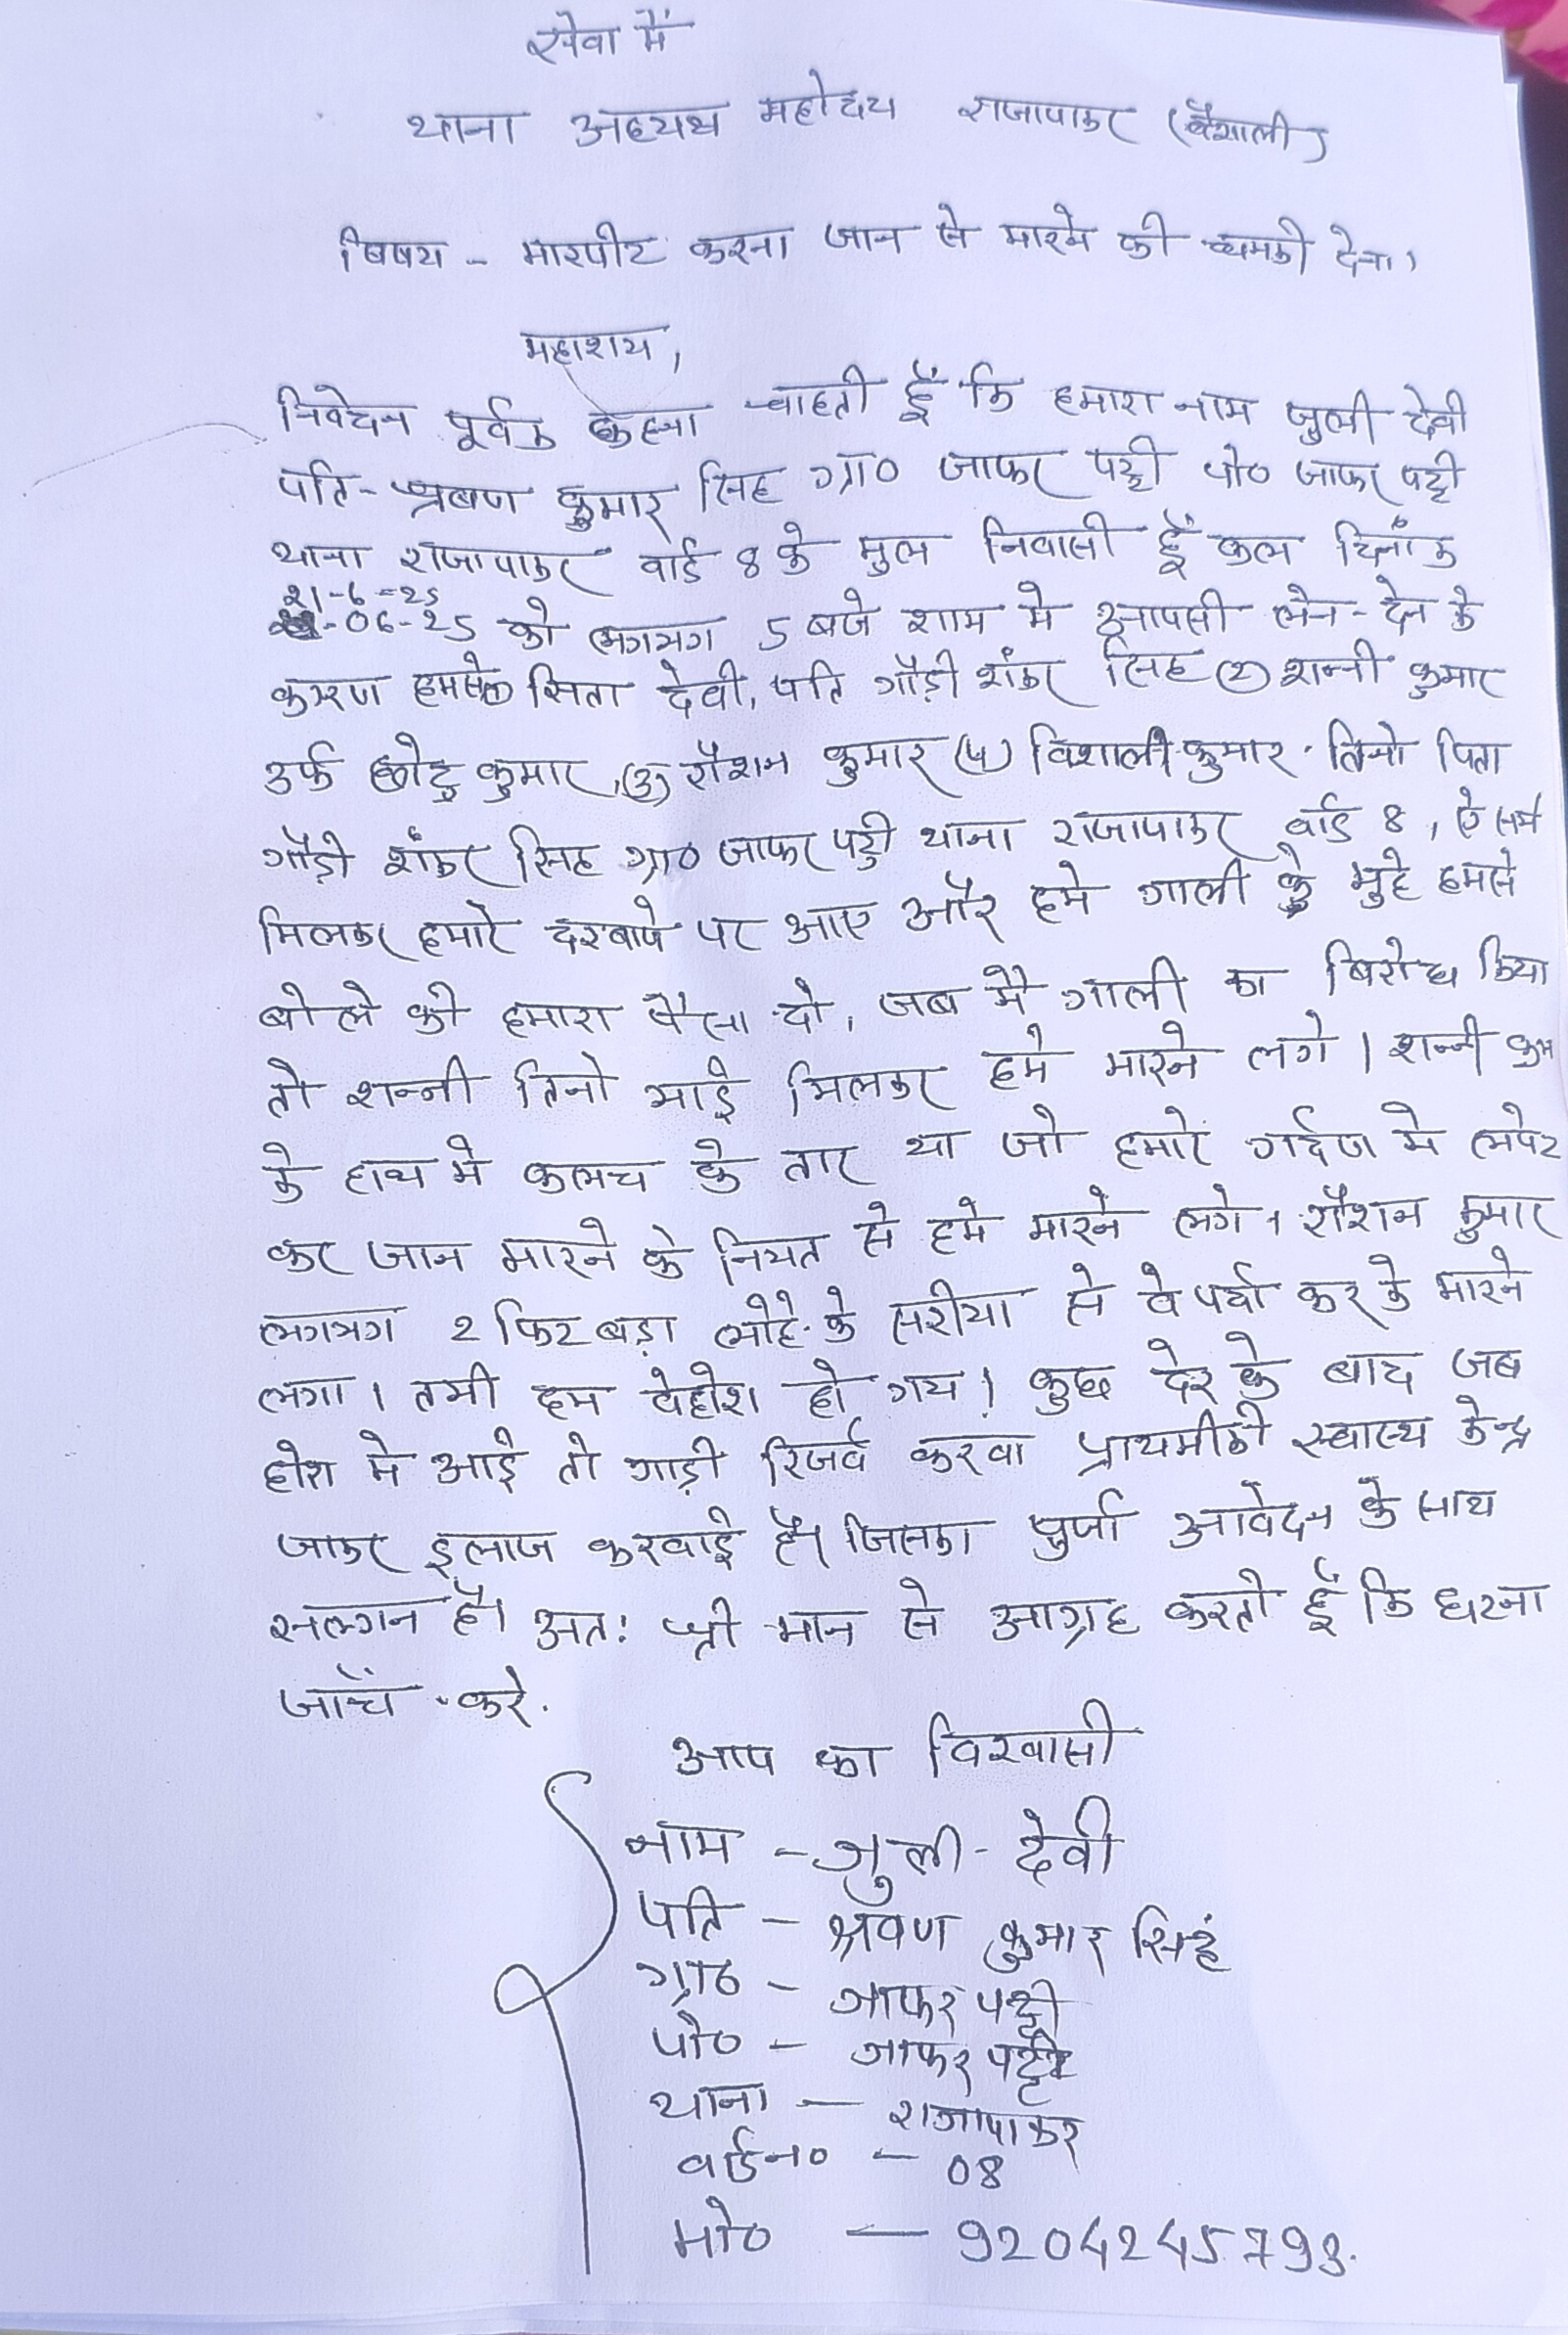 सेवा में
थाना अध्यक्ष महोदय राजापाकर (वैशाली)
बिषय - मारपीट करना जान से मारने की धमकी देना।
महाशय,
निवेदन पूर्वक कहना चाहती हूँ कि हमारा नाम जुली देवी
पति-श्रबण कुमार सिंह ग्रा० जाफर पट्टी पो० जाफर पट्टी
थाना राजापाकर वार्ड 8 के मुल निवासी हूँ कल दिनाँक
21-6=25
-06-25 को लगभग 5 बजे शाम मे आपसी लेन-देन के
कारण हमसे सिता देवी, पति गौड़ी शंकर सिंह (2) शन्नी कुमार
उर्फ छोटु कुमार, (3) रौशन कुमार (4) विशाल कुमार. तिनो पिता
गौड़ी शंकर सिंह ग्रा० जाफर पट्टी थाना राजापाकर वार्ड 8, ऐ सभी
मिलकर हमारे दरबाजे पर आए और हमे गाली के मुहे हमसे
बोले की हमारा पैसा दो, जब मै गाली का बिरोध किया
तो शन्नी तिनो भाई मिलकर हमे मारने लगे। शन्नी कुमार
के हाथ मे कलच के तार था जो हमारे गर्दण मे लपेट
कर जान मारने के नियत से हमे मारने लगे। रौशन कुमार
लगभग 2 फिट बड़ा लोहे के सरीया से वे पर्दा कर के मारने
लगा। तभी हम वेहोश हो गय। कुछ देर के बाद जब
होश मे आई तो गाड़ी रिजर्व करवा प्राथमीकी स्वास्थ केन्द्र
जाकर इलाज करवाई है। जिसका पुर्जा आवेदन के साथ
सलग्न है। अत: श्री मान से आग्रह करती हूँ कि घटना
जाँच करे.
आप का विश्वासी
नाम - जुली - देवी
पति - श्रवण कुमार सिहं
ग्रा० - जाफर पट्टी
पो० - जाफर पट्टी
थाना - राजापाकर
वार्ड न० - 08
मो० - 9204245793.